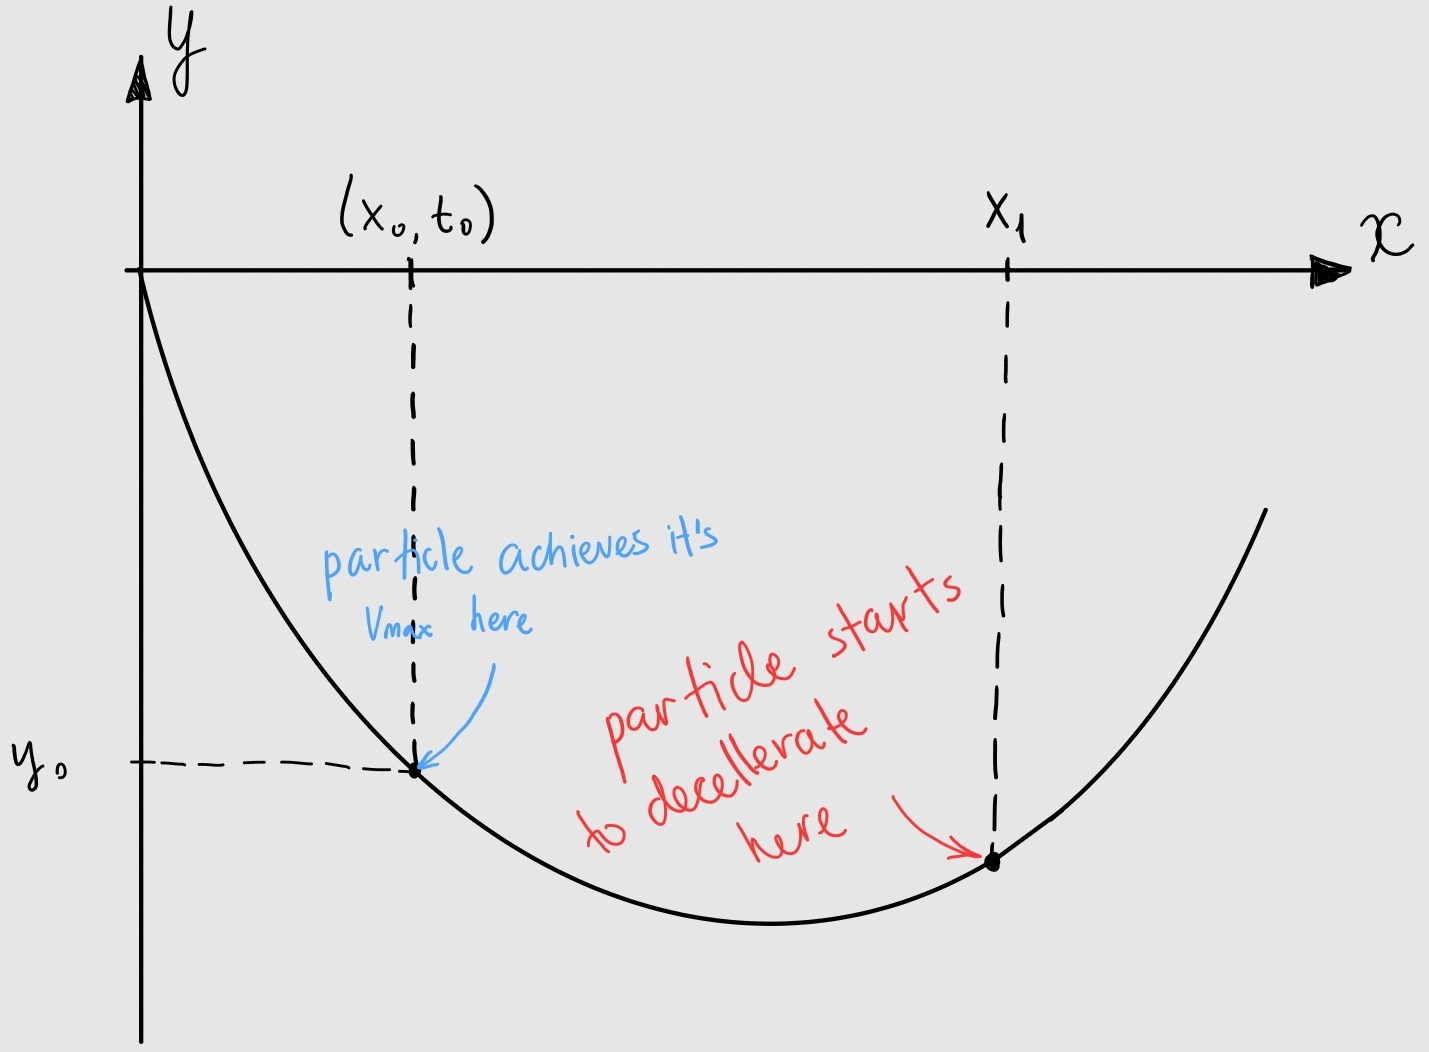 y
(x₀, t₀)
x₁
x
particle achieves it's
Vmax here
particle starts
to decellerate
here
y₀